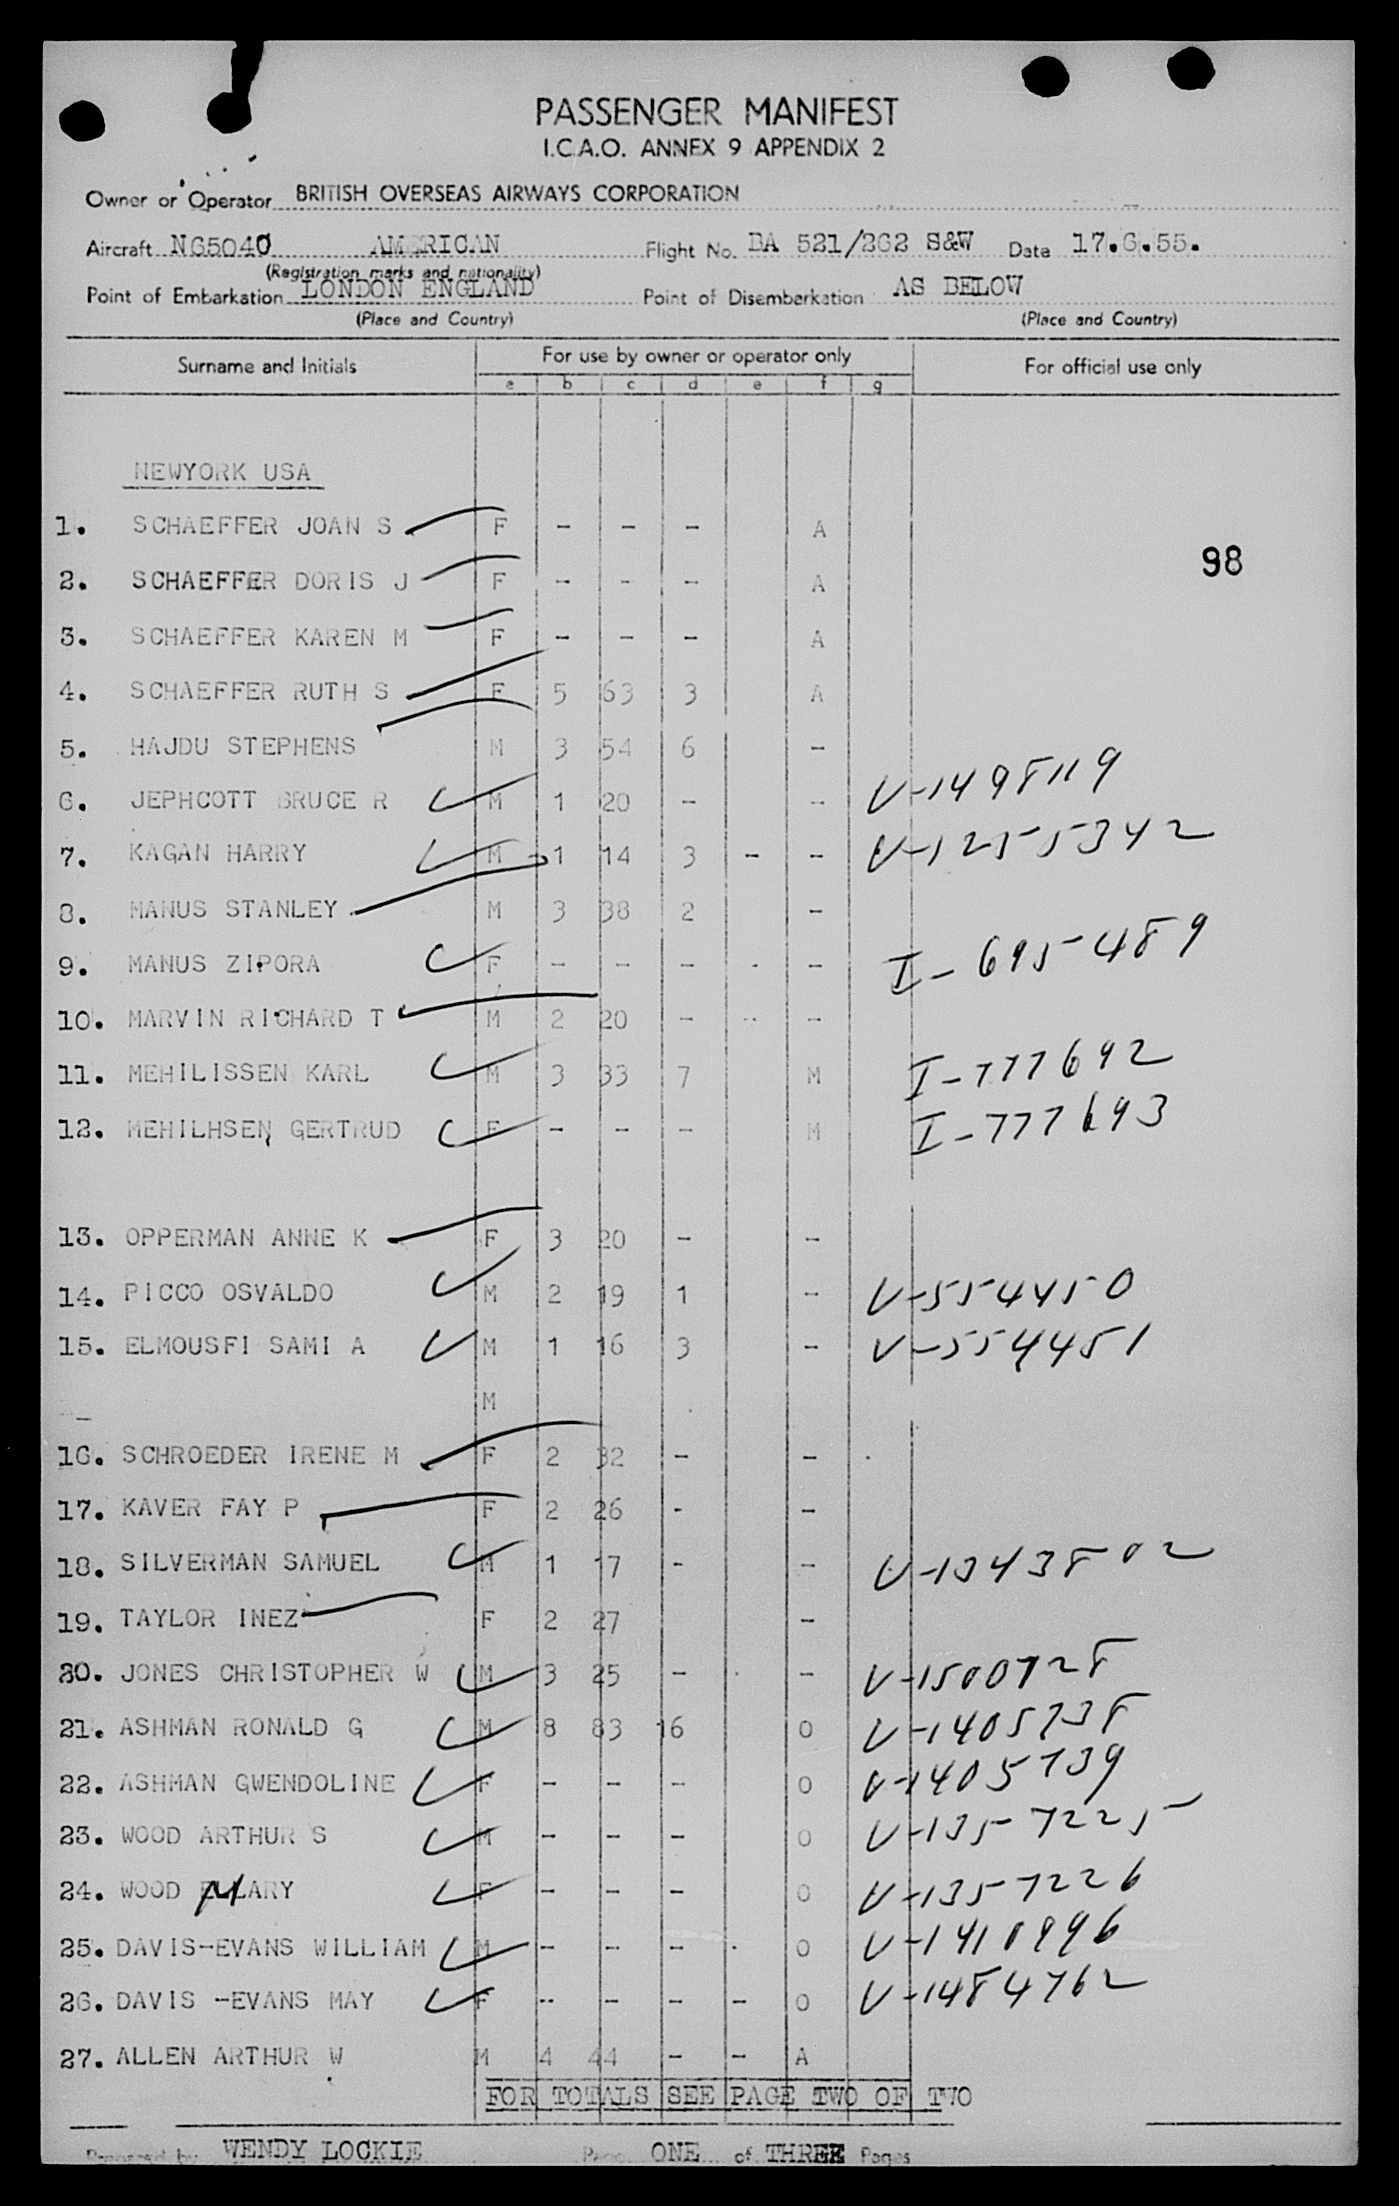 PASSENGER MANIFEST
I.C.A.O. ANNEX 9 APPENDIX 2
Owner or Operator BRITISH OVERSEAS AIRWAYS CORPORATION
Aircraft NG5040 AMERICAN Flight No. BA 521/262 S&W Date 17.6.55.
(Registration marks and nationality)
Point of Embarkation LONDON ENGLAND Point of Disembarkation AS BELOW
(Place and Country) (Place and Country)
Surname and Initials For use by owner or operator only For official use only
a b c d e f g
NEWYORK USA
1. SCHAEFFER JOAN S F - - - A
98
2. SCHAEFFER DORIS J F - - - A
3. SCHAEFFER KAREN M F - - - A
4. SCHAEFFER RUTH S F 5 63 3 A
5. HAJDU STEPHENS M 3 54 6 -
6. JEPHCOTT BRUCE R M 1 20 - - V-1498119
7. KAGAN HARRY M -1 14 3 - - V-1255342
8. MANUS STANLEY M 3 38 2 -
9. MANUS ZIPORA F - - - - - I-695489
10. MARVIN RICHARD T M 2 20 - -- -
11. MEHILISSEN KARL M 3 33 7 M I-777692
12. MEHILHSEN GERTRUD F - - - M I-777693
13. OPPERMAN ANNE K F 3 20 - -
14. PICCO OSVALDO M 2 19 1 - V-554450
15. ELMOUSFI SAMI A M 1 16 3 - V-554451
M
16. SCHROEDER IRENE M F 2 32 - -
17. KAVER FAY P F 2 26 - -
18. SILVERMAN SAMUEL M 1 17 - - V-1343802
19. TAYLOR INEZ F 2 27 -
20. JONES CHRISTOPHER W M 3 25 - - V-1500728
21. ASHMAN RONALD G M 8 83 16 O V-1405738
22. ASHMAN GWENDOLINE F - - - O V-1405739
23. WOOD ARTHUR S M - - - O V-1357225
24. WOOD MARY F - - - O V-1357226
25. DAVIS-EVANS WILLIAM M - - - O V-1410996
26. DAVIS -EVANS MAY F -- - - - O V-1484762
27. ALLEN ARTHUR W M 4 44 - - A
FOR TOTALS SEE PAGE TWO OF TWO
Prepared by WENDY LOCKIE Page ONE of THREE Pages